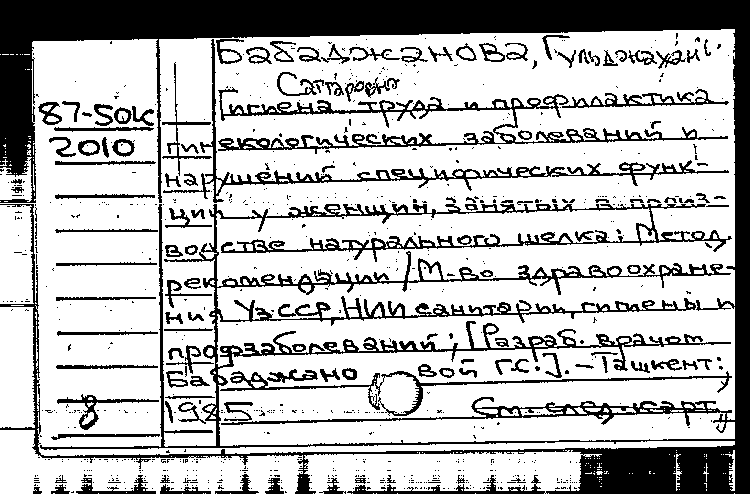 Бабаджанова, Гульджахан
Саттаровна
Гигиена труда и профилактика
87-50к
2010
гинекологических заболеваний и
нарушений специфических функ-
ций у женщин, занятых в произ-
водстве натурального шелка: Метод.
рекомендации / М-во здравоохране-
ния УзССР, НИИ санитарии, гигиены и
профзаболеваний; [Разраб. врачом
Бабаджановой Г.С.]. - Ташкент:
8
1985
См. след. карт.